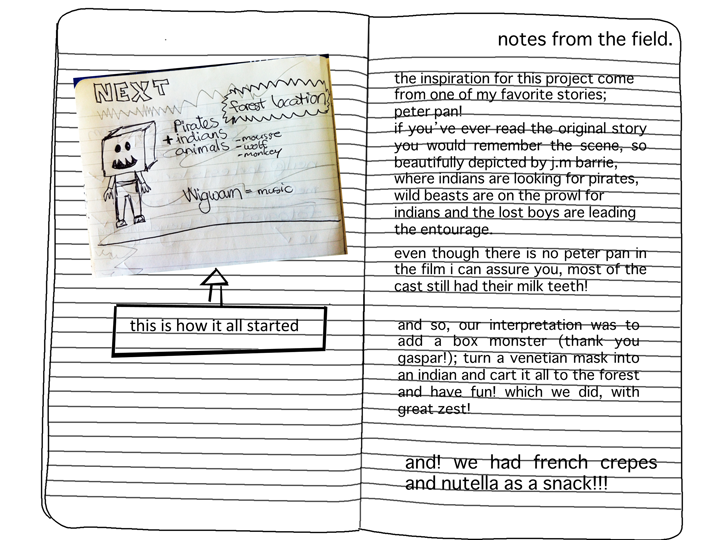 NEXT
forest location
Pirates
+ indians
animals
- mousse
- wolf
- monkey
Wigwam = music
this is how it all started
notes from the field.
the inspiration for this project come
from one of my favorite stories;
peter pan!
if you've ever read the original story
you would remember the scene, so
beautifully depicted by j.m barrie,
where indians are looking for pirates,
wild beasts are on the prowl for
indians and the lost boys are leading
the entourage.
even though there is no peter pan in
the film i can assure you, most of the
cast still had their milk teeth!
and so, our interpretation was to
add a box monster (thank you
gaspar!); turn a venetian mask into
an indian and cart it all to the forest
and have fun! which we did, with
great zest!
and! we had french crepes
and nutella as a snack!!!